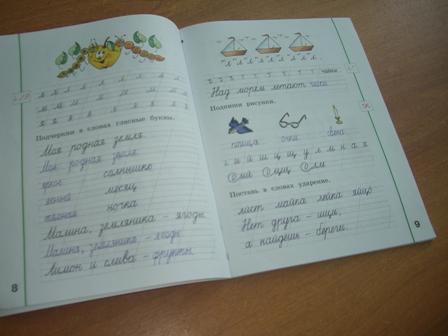 Подчеркни в словах гласные буквы.
Моя родная земля
Моя родная земля
ясное солнышко
ясный месяц
тёмная ночка
Малина, земляника - ягоды
Малина, земляника - ягоды
Лимон и слива - фрукты
8
чайки
Над морем летают чайки
Подпиши рисунки.
птица очки свеча
Поставь в словах ударение.
лист майка лейка яйцо
Нет друга - ищи,
а найдёшь - береги.
9